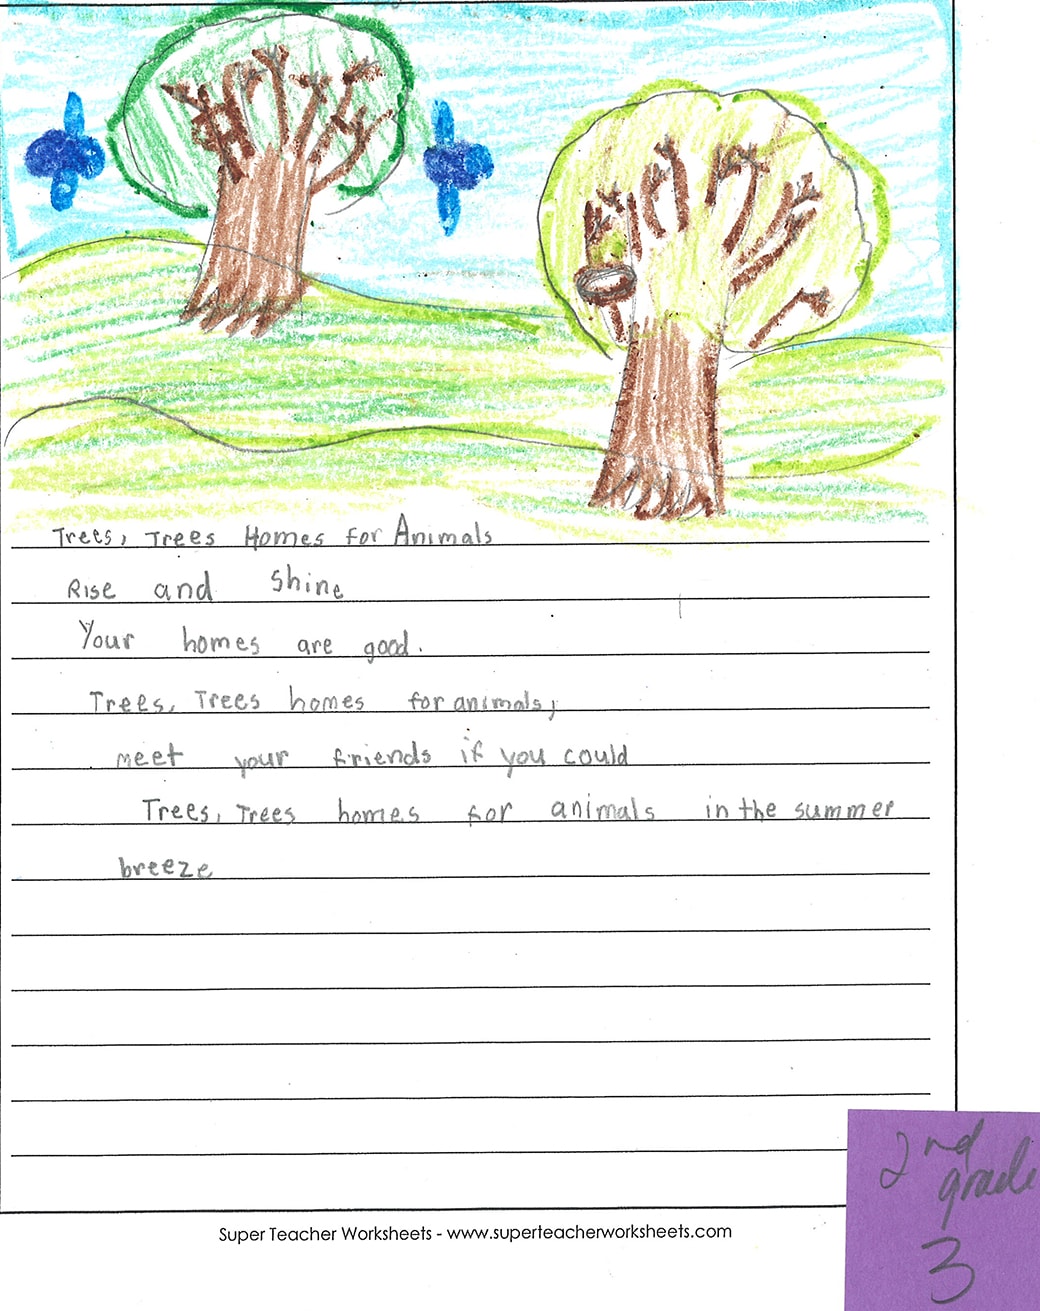 Trees, Trees Homes for Animals
Rise and Shine
Your homes are good.
Trees, Trees homes for animals,
meet your friends if you could
Trees, Trees homes for animals in the summer
breeze
2nd
grade
3
Super Teacher Worksheets - www.superteacherworksheets.com